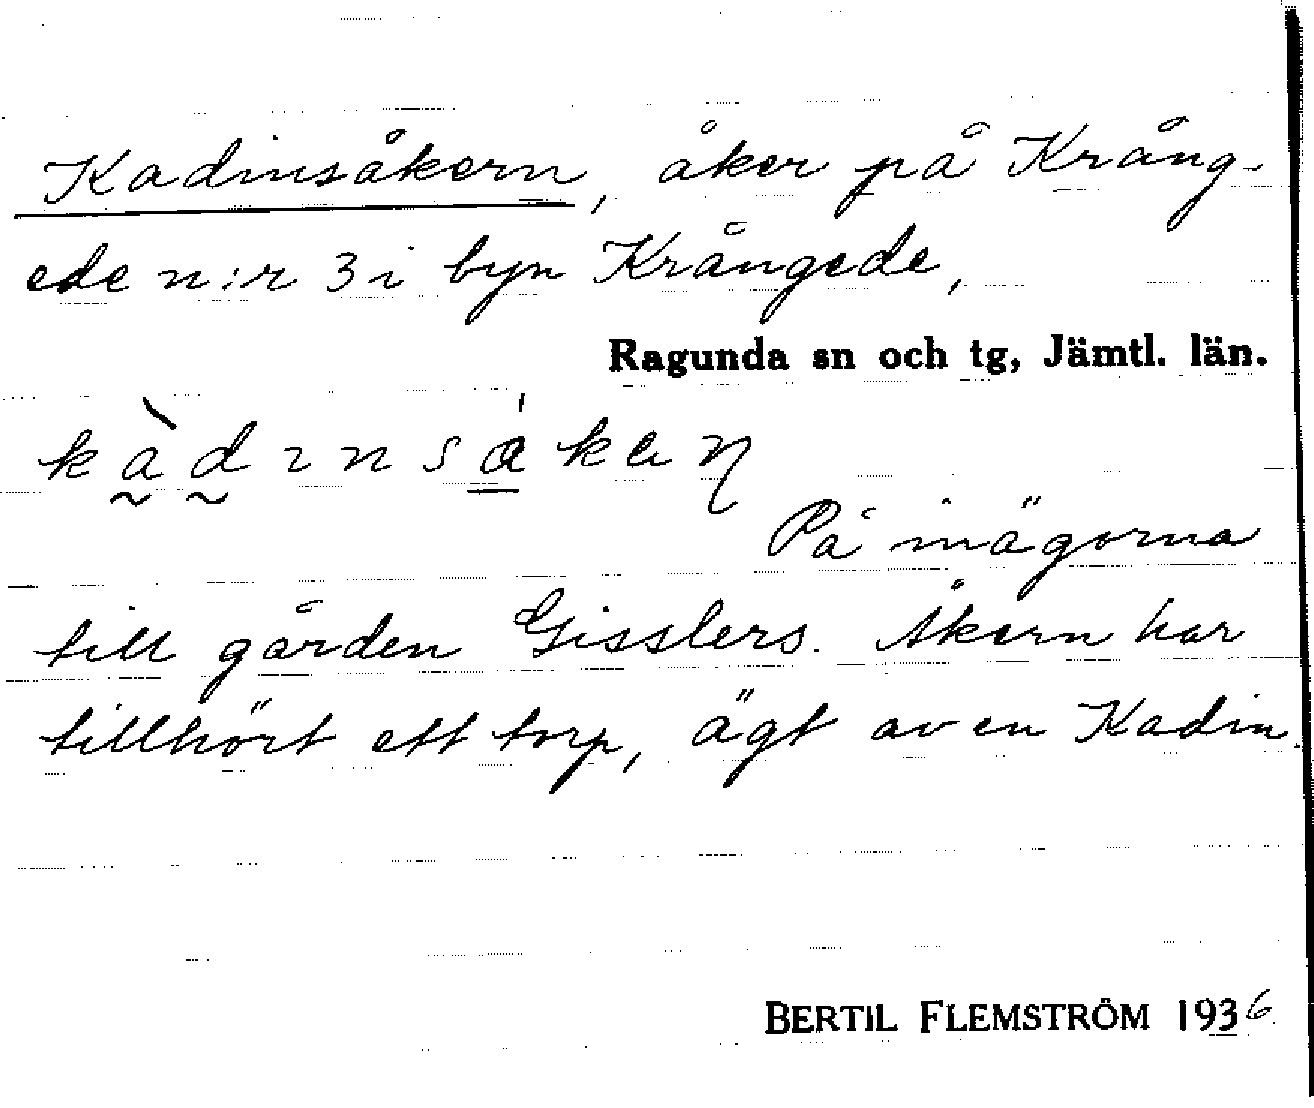 Kadinsåkern, åker på Krång-
ede n:r 3 i byn Krångede,
Ragunda sn och tg, Jämtl. län.
På inägorna
till gården Gisslers. Åkern har
tillhört ett torp, ägt av en Kadin.
BERTIL FLEMSTRÖM 1936